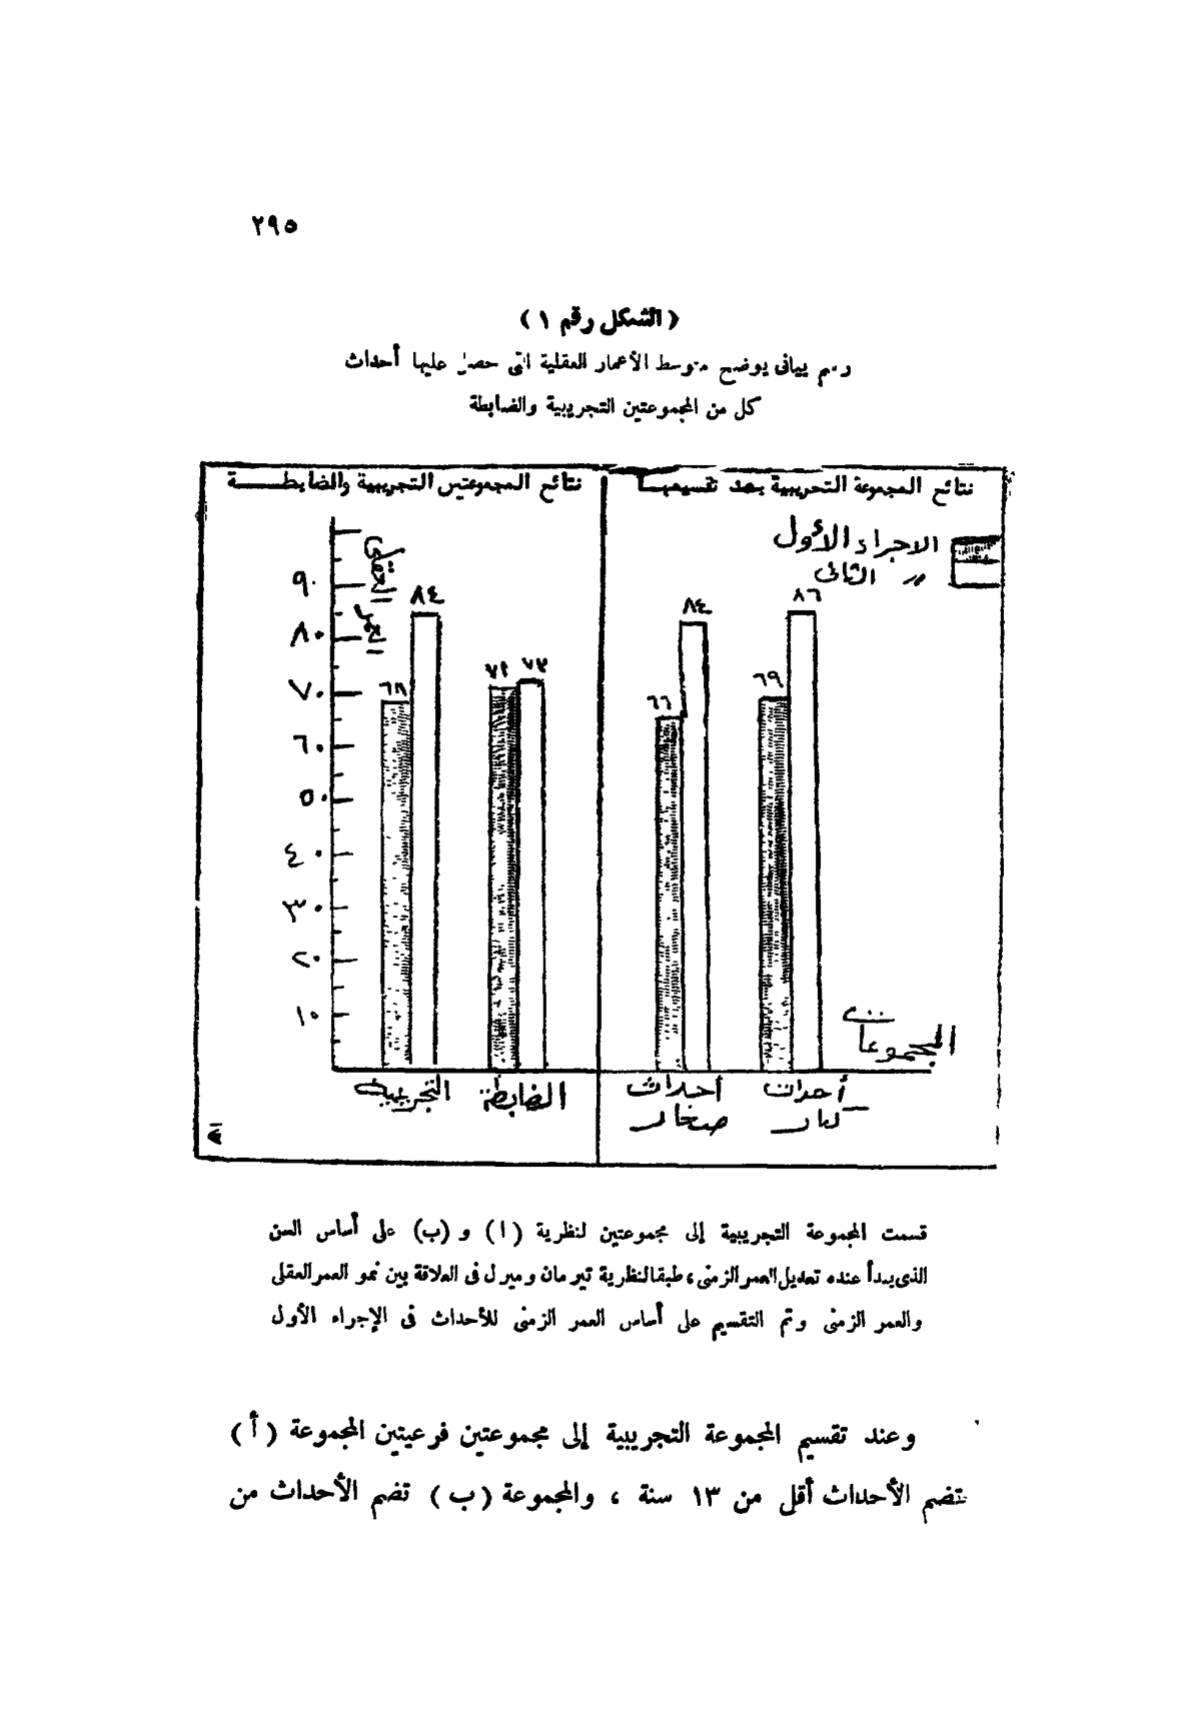 ٢٩٥
( الشكل رقم ١ )
رسم بياني يوضح متوسط الأعمار العقلية التى حصل عليها أحداث
كل من المجموعتين التجريبية والضابطة
نتائج المجموعة التجريبية بعد تقسيمهـــا
نتائج المجموعتين التجريبية والضابطـــــة
الاجراء الأول
〃 الثانى
العمر العقلى
٩٠
٨٠
٧٠
٦٠
٥٠
٤٠
٣٠
٢٠
١٠
٦٨
٨٤
٧٢
٧٣
٦٦
٨٤
٦٩
٨٦
المجموعات
التجريبية
الضابطة
أحداث صغار
أحداث كبار
قسمت المجموعة التجريبية إلى مجموعتين لنظرية ( ا ) و (ب) على أساس السن
الذى يبدأ عنده تعديل العمر الزمنى ، طبقا لنظرية تيرمان وميرل فى العلاقة بين نمو العمر العقلى
والعمر الزمنى وتم التقسيم على أساس العمر الزمنى للأحداث فى الإجراء الأول
وعند تقسيم المجموعة التجريبية إلى مجموعتين فرعيتين المجموعة ( أ )
تضم الأحداث أقل من ١٣ سنة ، والمجموعة ( ب ) تضم الأحداث من